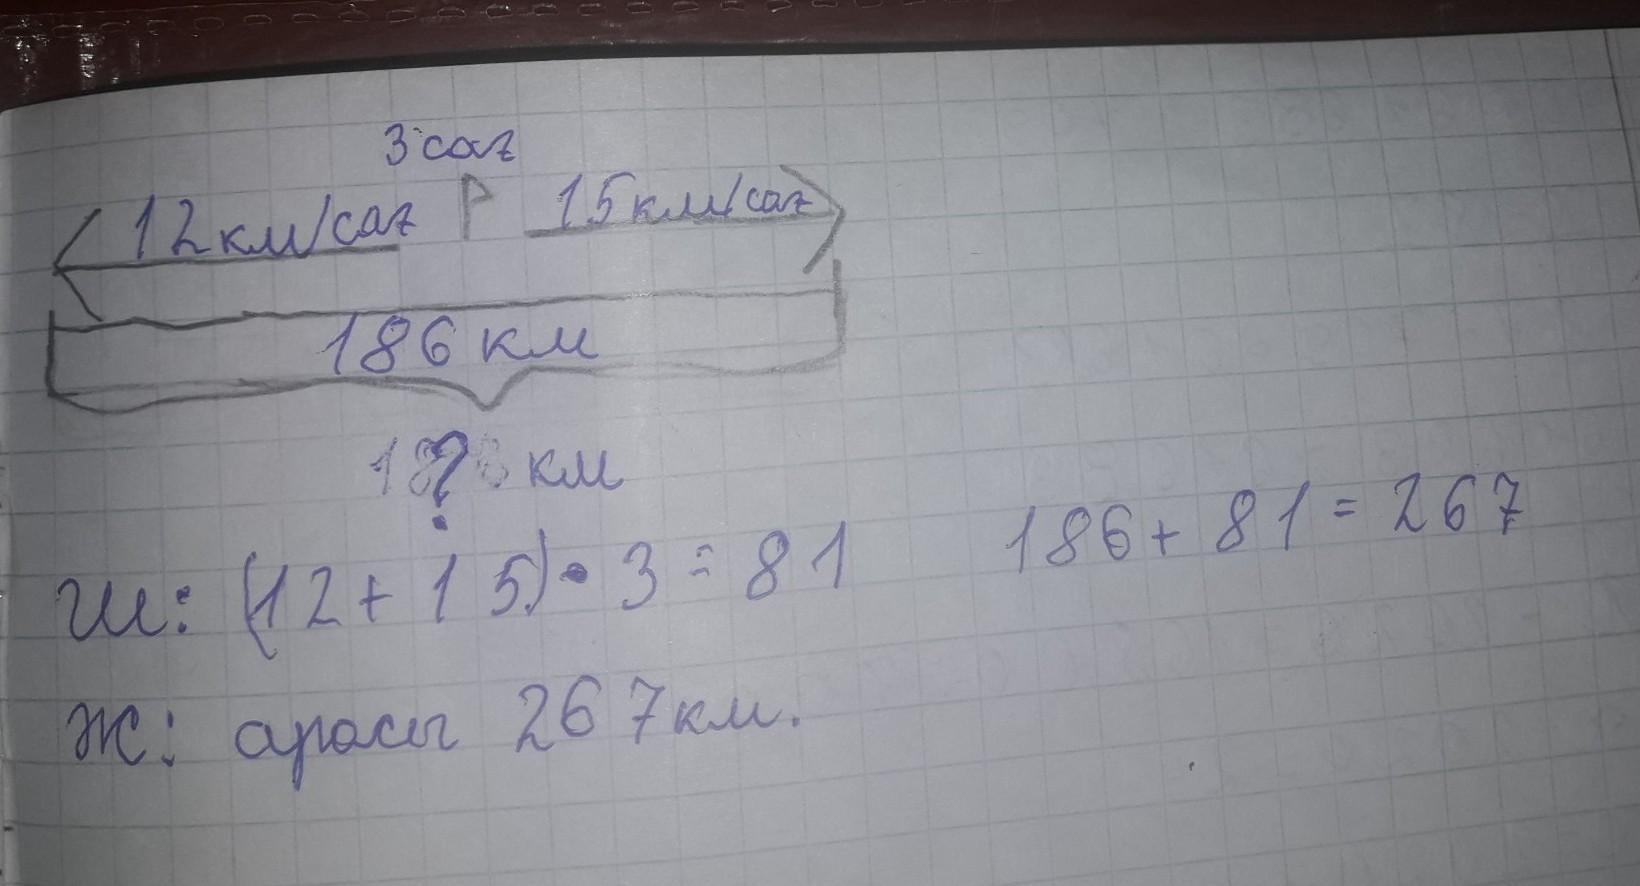 3 сағ
12 км/сағ 15 км/сағ
186 км
? км
Ш: (12 + 15) • 3 = 81 186 + 81 = 267
Ж: арасы 267 км.